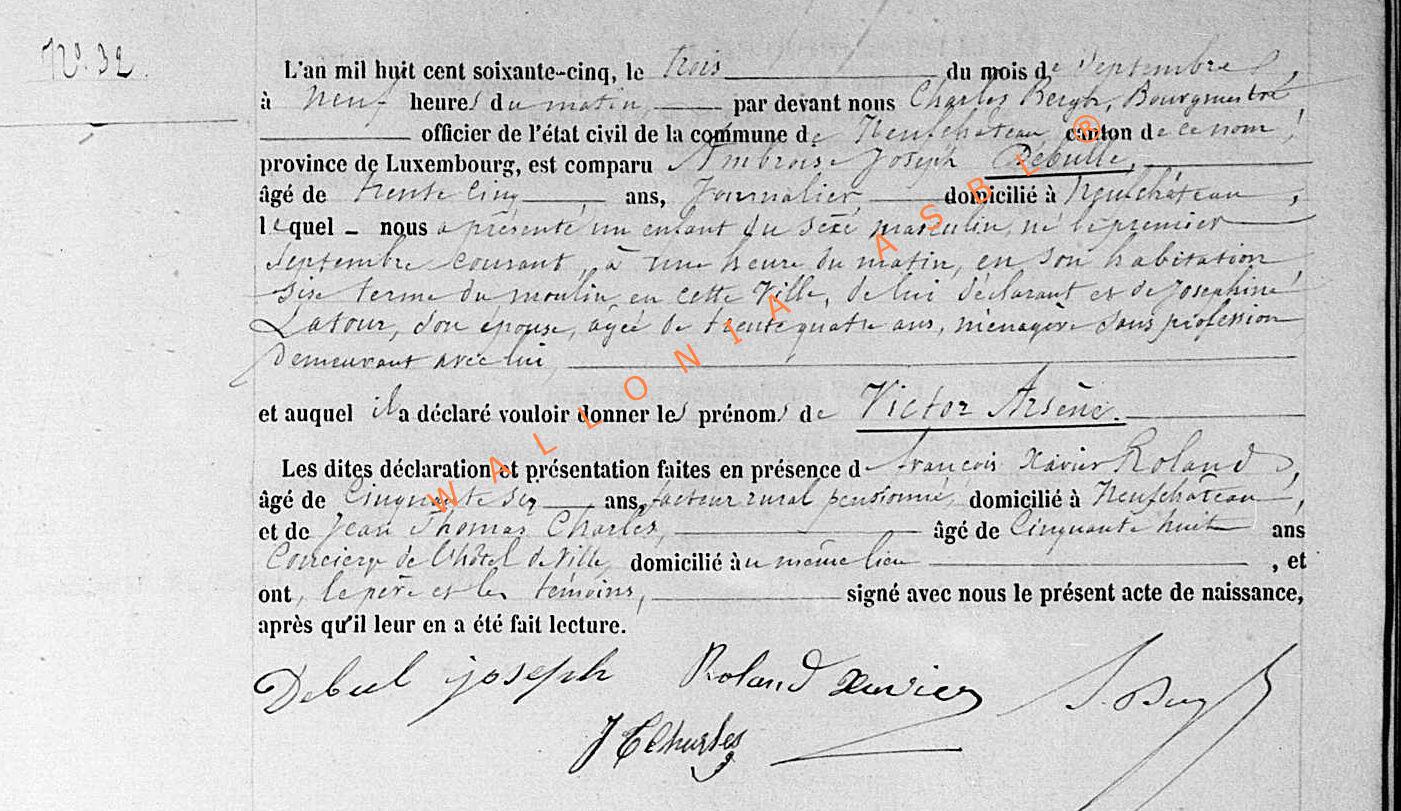 N.° 32.
L'an mil huit cent soixante-cinq, le trois du mois de Septembre,
à neuf heures du matin, par devant nous Charles Bergh, Bourgmestre
officier de l'état civil de la commune de Neufchâteau canton de ce nom,
province de Luxembourg, est comparu Ambroise Joseph Debulle,
âgé de trente cinq ans, Journalier, domicilié à Neufchâteau,
lequel nous a présenté un enfant du sexe masculin, né le premier
Septembre courant, à une heure du matin, en son habitation
sise terme du moulin en cette Ville, de lui déclarant et de Joséphine
Latour, son épouse, âgée de trente quatre ans, ménagère sans profession
demeurant avec lui,
et auquel il a déclaré vouloir donner les prénoms de Victor Arsène.
Les dites déclaration et présentation faites en présence de François Xavier Roland,
âgé de Cinquante six ans, facteur rural pensionné, domicilié à Neufchâteau,
et de Jean Thomas Charles, âgé de Cinquante huit ans
Concierge de l'hôtel de Ville, domicilié au même lieu, et
ont, le père et les témoins, signé avec nous le présent acte de naissance,
après qu'il leur en a été fait lecture.
Debul joseph Roland Xavier
JTCharles
WALLONIA ASBL ®